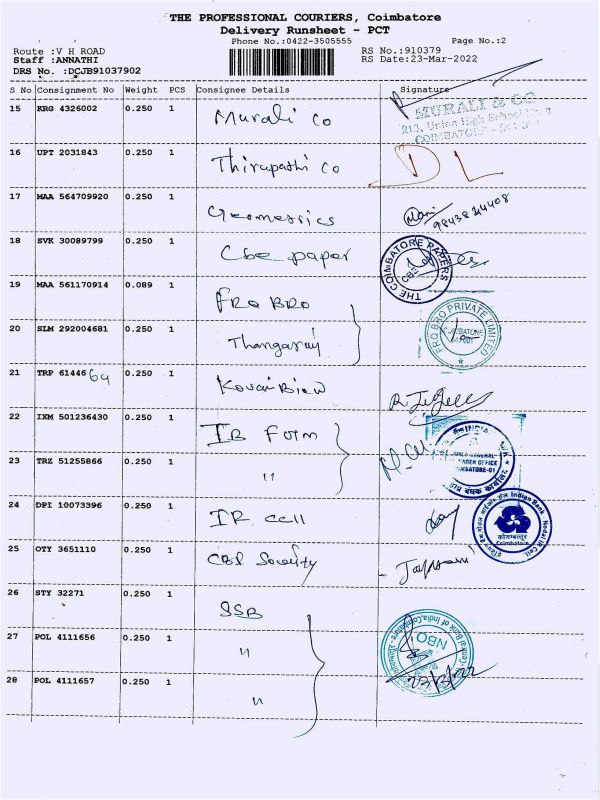 THE PROFESSIONAL COURIERS, Coimbatore
Delivery Runsheet - PCT
Phone No.:0422-3505555
Page No.:2
Route :V H ROAD
RS No.:910379
Staff :ANNATHI
RS Date:23-Mar-2022
DRS No. :DCJB91037902
S No Consignment No Weight PCS Consignee Details Signature
15 KRG 4326002 0.250 1 Murali Co
MURALI & CO
213, Union High School
COIMBATORE
16 UPT 2031843 0.250 1 Thirupathi Co
17 MAA 564709920 0.250 1 Geometrics
Mani
18 SVK 30089799 0.250 1 Cbe paper
THE COIMBATORE PAPERS
CBE
19 MAA 561170914 0.089 1 FRQ BRO
FRQ BRO PRIVATE LIMITED
COIMBATORE
20 SLM 292004681 0.250 1 Thangaraj
21 TRP 61446 64 0.250 1
22 IXM 501236430 0.250 1 IB Form
23 TRZ 51255866 0.250 1 "
24 DPI 10073396 0.250 1 IR cell
Indian Bank
कोयम्बत्तूर
Coimbatore
25 OTY 3651110 0.250 1
26 STY 32271 0.250 1 SSB
27 POL 4111656 0.250 1 "
NBO
28 POL 4111657 0.250 1 "